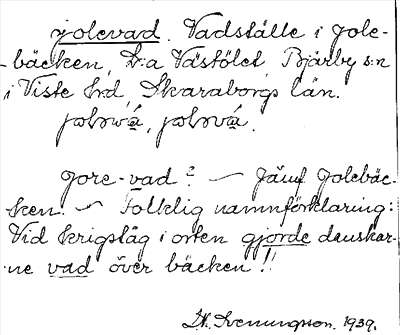 jolevad. Vadställe i Jole-
bäcken, St.a Västölet, Bjärby s:n
i Viste hrd, Skaraborgs län.
Jore-vad? – Jämf. Jolebäc-
ken. – Folklig namnförklaring:
Vid krigståg i orten gjorde danskar-
ne vad över bäcken!!
D. Svenungsson. 1939.